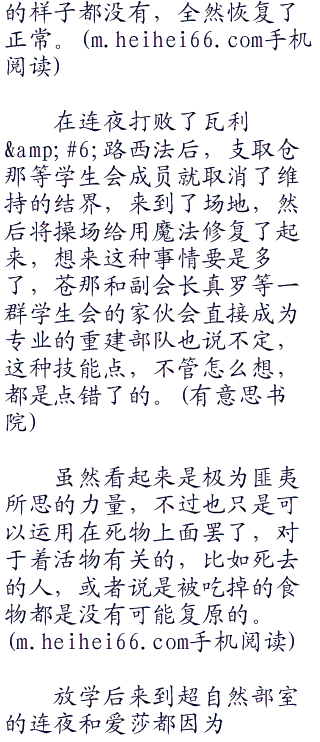 的样子都没有，全然恢复了
正常。(m.heihei66.com手机
阅读)
在连夜打败了瓦利
&amp;#6;路西法后，支取仓
那等学生会成员就取消了维
持的结界，来到了场地，然
后将操场给用魔法修复了起
来，想来这种事情要是多
了，苍那和副会长真罗等一
群学生会的家伙会直接成为
专业的重建部队也说不定，
这种技能点，不管怎么想，
都是点错了的。(有意思书
院)
虽然看起来是极为匪夷
所思的力量，不过也只是可
以运用在死物上面罢了，对
于着活物有关的，比如死去
的人，或者说是被吃掉的食
物都是没有可能复原的。
(m.heihei66.com手机阅读)
放学后来到超自然部室
的连夜和爱莎都因为